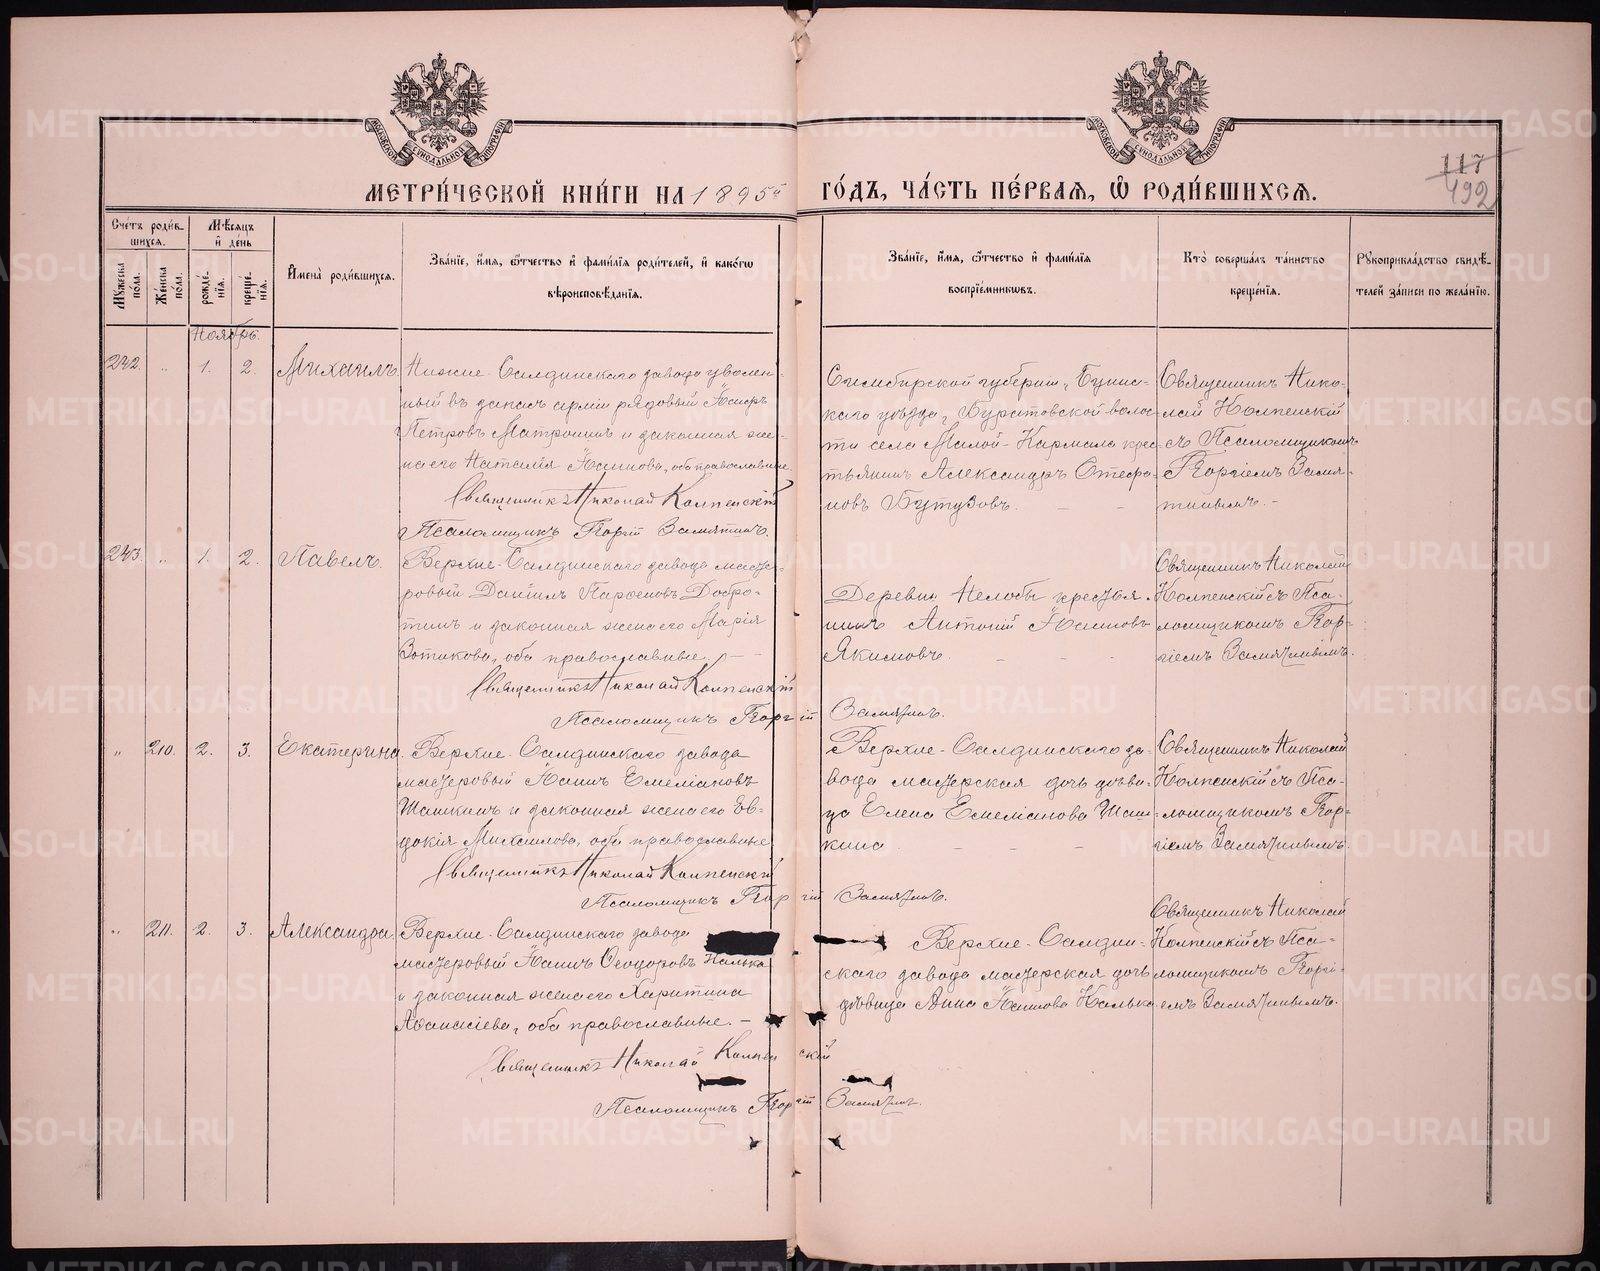 МОСКОВСКОЙ СѴНОДАЛЬНОЙ ТИПОГРАФІИ
МОСКОВСКОЙ СѴНОДАЛЬНОЙ ТИПОГРАФІИ
117
492
МЕТРИ́ЧЕСКОЙ КНИ́ГИ НА 1895й ГО́ДЪ, ЧА́СТЬ ПЕ́РВАЯ, Ѽ РОДИ́ВШИХСЯ.
Сче́тъ роди́в-
шихся.
Мѣ́сяцъ
и де́нь
Му́жеска по́ла.
Же́нска по́ла.
рожде́-
нія.
креще́-
нія.
Имена̀ роди́вшихся.
Зва́ніе, и́мя, ѻ҆́тчество и фами́лія роди́телей, и како́гѡ
вѣроисповѣ́данія.
Зва́ніе, и́мя, ѻ҆́тчество и фами́лія
воспріе́мниковъ.
Кто̀ соверша́лъ та́инство
креще́нія.
Рукоприкла́дство свидѣ́-
телей за́писи по жела́нію.
Ноябрь.
242. „ 1. 2. Михаилъ.
Нижне-Салдинскаго завода уволен-
ный въ запасъ арміи рядовый
Петровъ Матрошинъ и законная же-
на его Наталія Іоаннова, оба православные.
Священникъ Николай Колпенскій
Псаломщикъ Георгій Замятинъ.
Симбирской губерніи, Буинс-
каго уѣзда, Буратовской волос-
ти села Малой-Кармала крес-
тьянинъ Александръ Стефа-
новъ Бутузовъ. - -
Священникъ Нико-
лай Колпенскій
съ Псаломщикомъ
Георгіемъ Замя-
тинымъ. -
243. „ 1. 2. Павелъ.
Верхне-Салдинскаго завода масте-
ровый Даніилъ Парѳеновъ Добро-
тинъ и законная жена его Марія
Зотикова, оба православные. - -
Священникъ Николай Колпенскій
Псаломщикъ Георгій Замятинъ.
Деревни Нелобы крестья-
нинъ Антоній Іоанновъ
Якимовъ. - - -
Священникъ Николай
Колпенскій съ Пса-
ломщикомъ Геор-
гіемъ Замятинымъ.
„ 210. 2. 3. Екатерина.
Верхне-Салдинскаго завода
мастеровый Іоаннъ Емеліановъ
Шашкинъ и законная жена его Ев-
докія Михаилова, оба православные.
Священникъ Николай Колпенскій
Псаломщикъ Георгій Замятинъ.
Верхне-Салдинскаго за-
вода мастерская дочь дѣви-
ца Елена Емеліанова Шаш-
кина - - -
Священникъ Николай
Колпенскій съ Пса-
ломщикомъ Геор-
гіемъ Замятинымъ.
„ 211. 2. 3. Александра.
Верхне-Салдинскаго завода
мастеровый Іоаннъ Ѳеодоровъ Налька
и законная жена его Харитина
Аѳанасіева, оба православные. -
Священникъ Николай Колпенскій
Псаломщикъ Георгій Замятинъ.
Верхне-Салдин-
скаго завода мастерская дочь
дѣвица Анна Іоаннова Налька
Священникъ Николай
Колпенскій съ Пса-
ломщикомъ Георгі-
емъ Замятинымъ.
METRIKI.GASO-URAL.RU